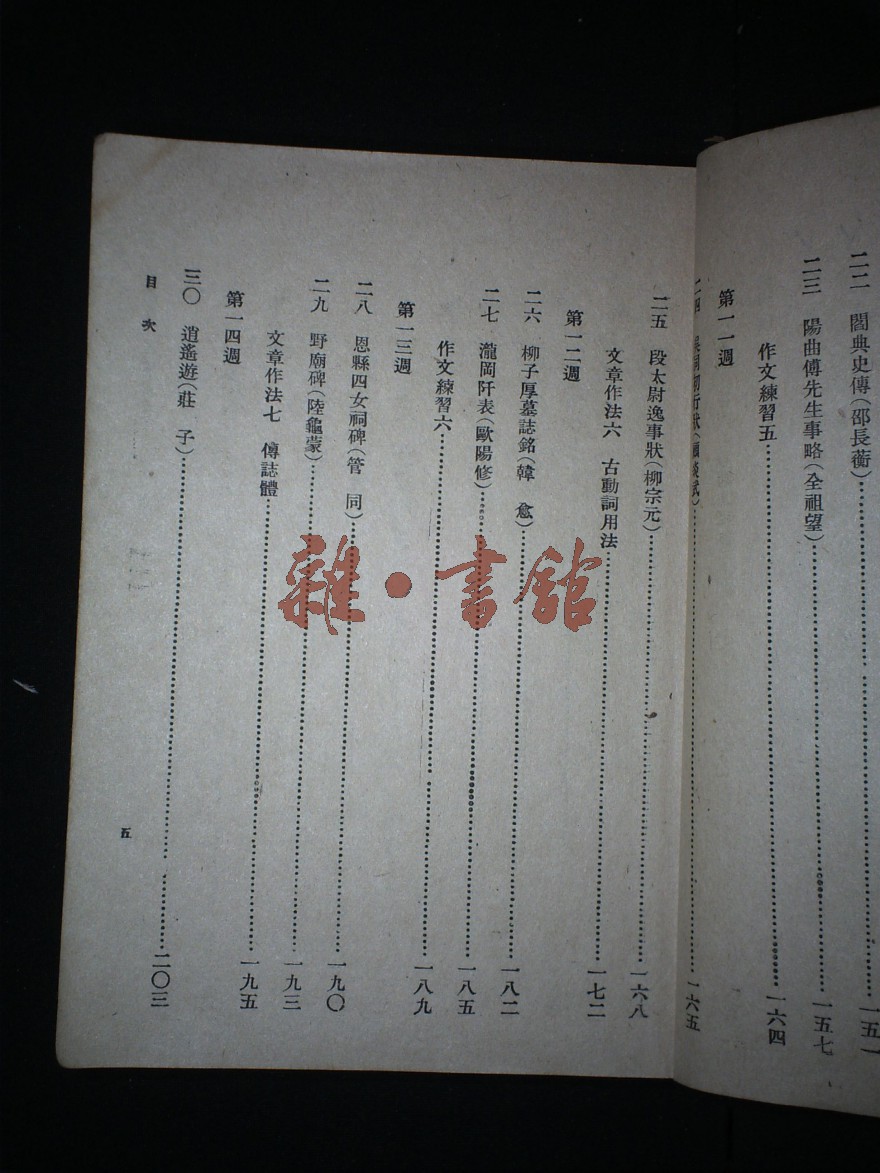 二二 閻典史傳(邵長蘅)……一五一
二三 陽曲傅先生事略(全祖望)……一五七
作文練習五……一六四
第一一週
二四 吳同初行狀(顧炎武)……一六五
二五 段太尉逸事狀(柳宗元)……一六八
文章作法六 古動詞用法……一七二
第一二週
二六 柳子厚墓誌銘(韓 愈)……一八二
二七 瀧岡阡表(歐陽修)……一八五
作文練習六……一八九
第一三週
二八 恩縣四女祠碑(管 同)……一九〇
二九 野廟碑(陸龜蒙)……一九三
文章作法七 傳誌體……一九五
第一四週
三〇 逍遙遊(莊 子)……二〇三
目次
五
雜·書館